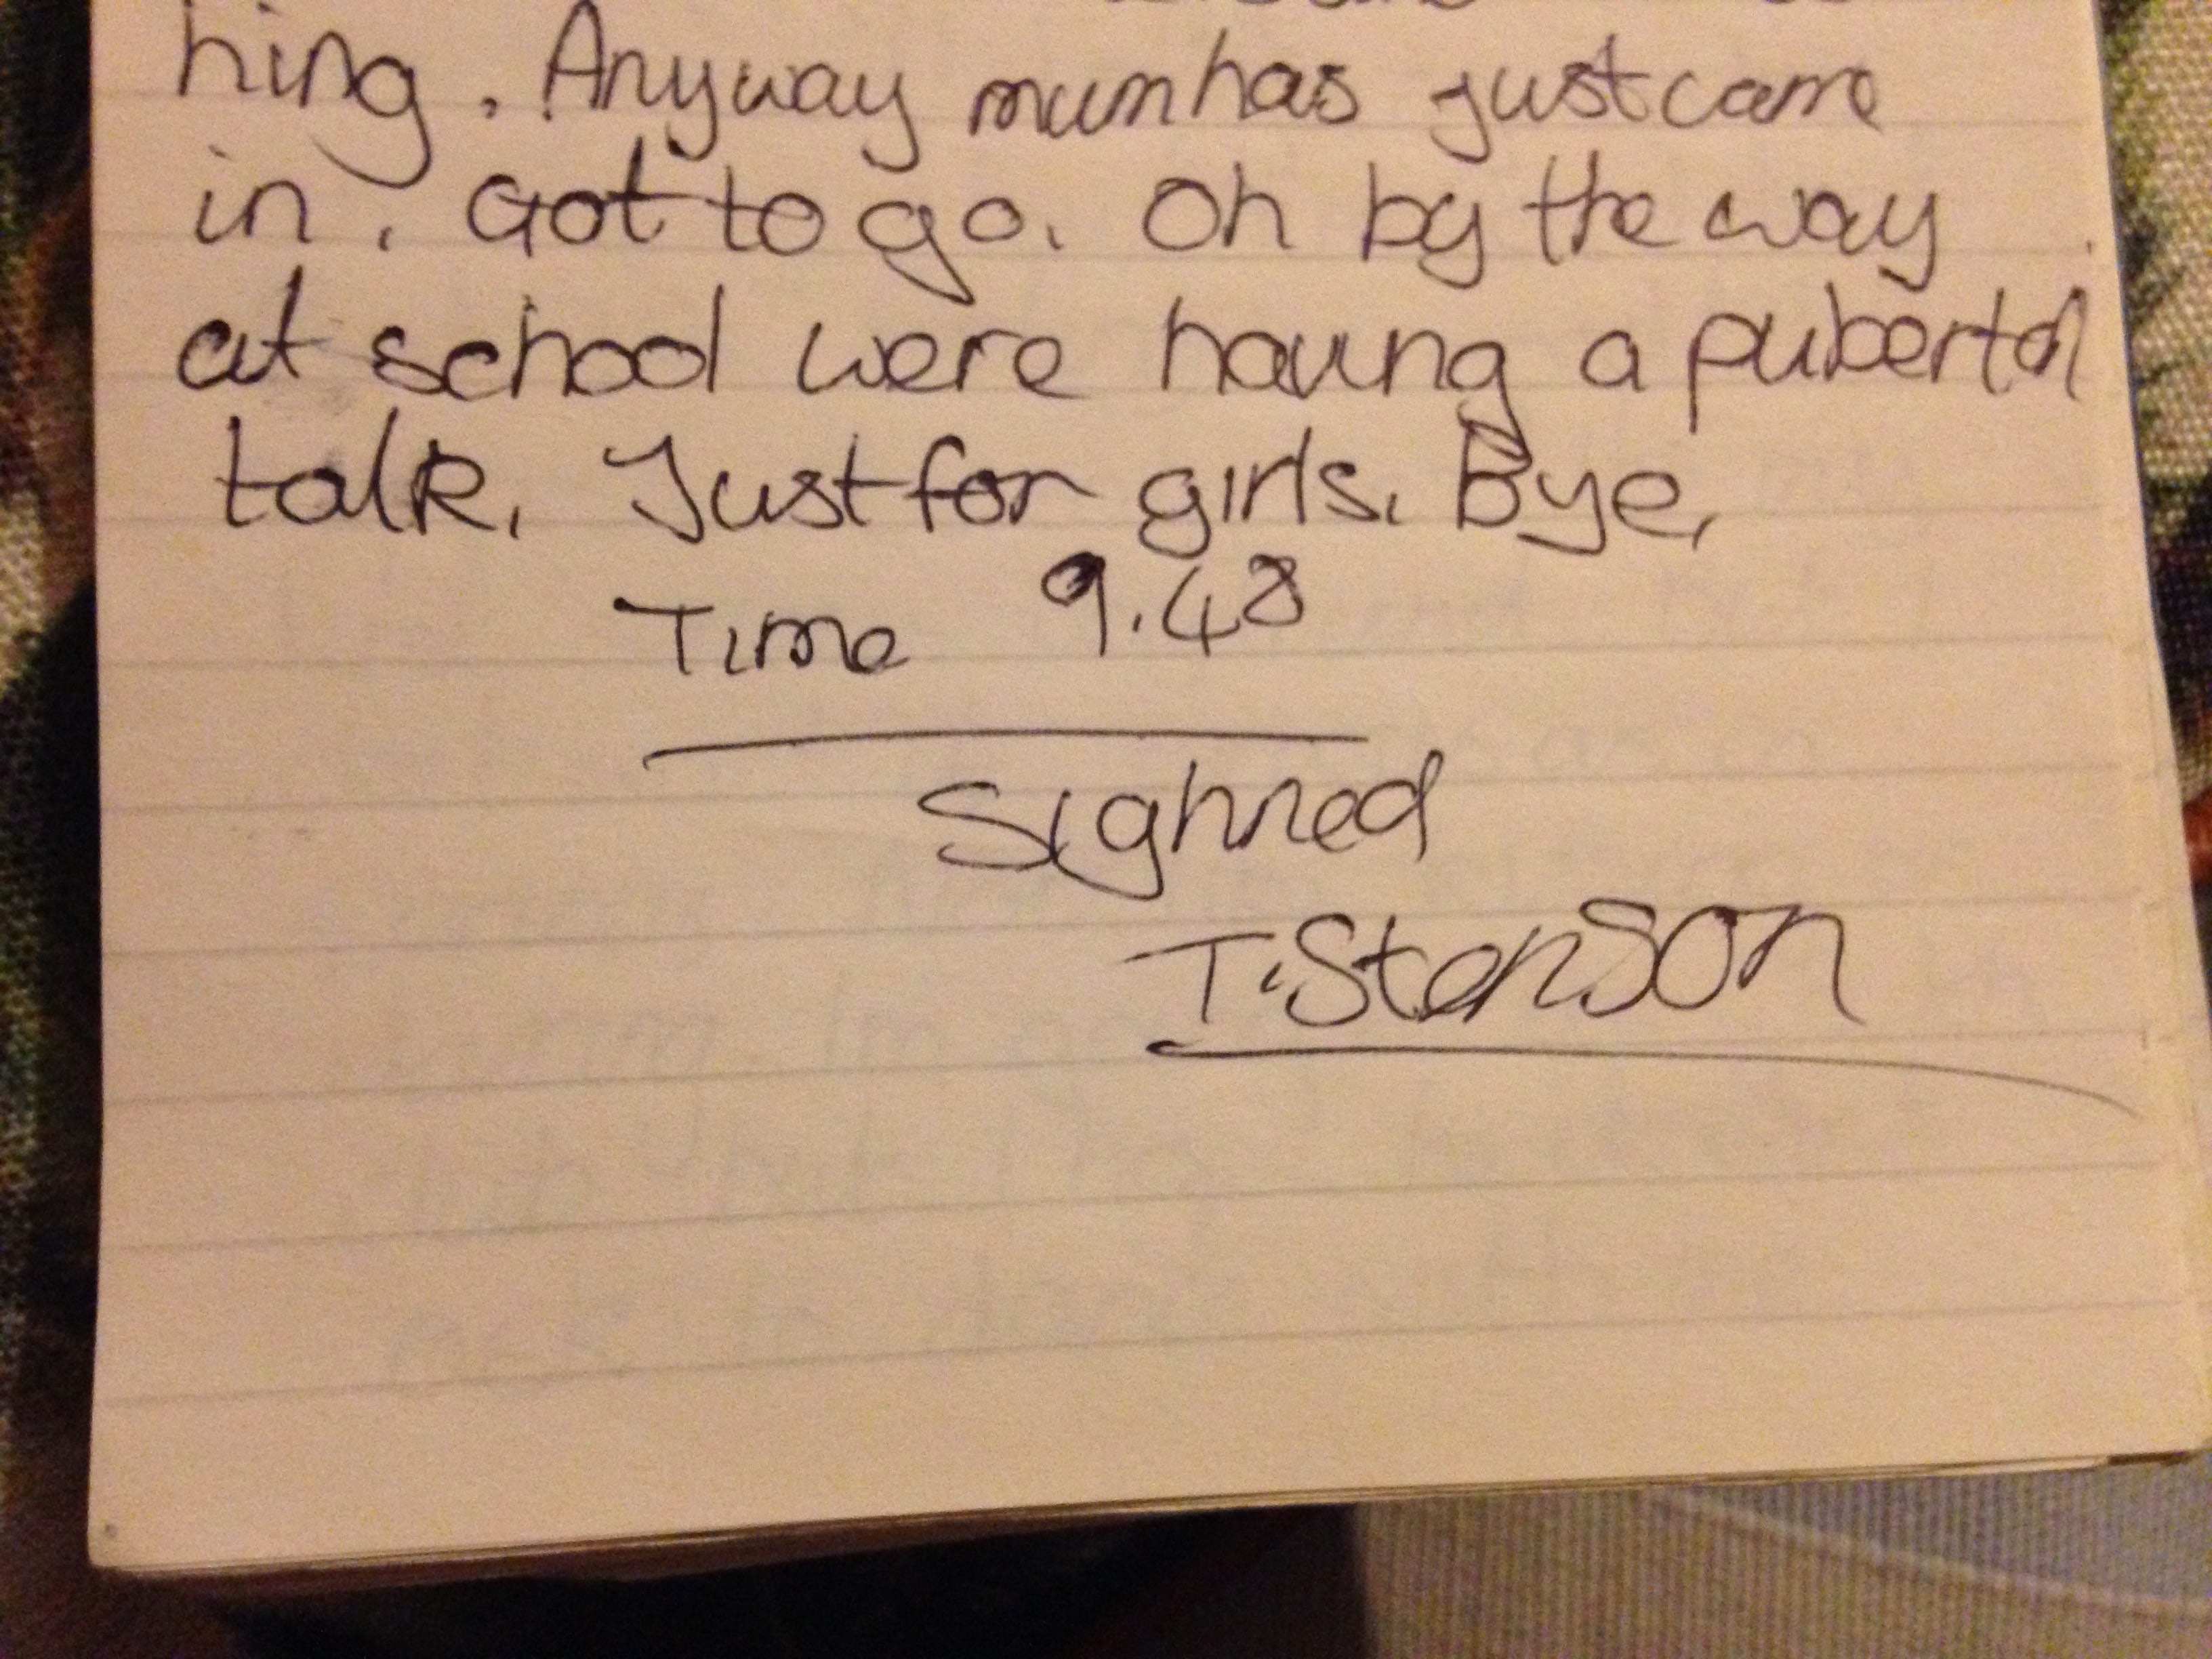 hing. Anyway mum has just came
in. Got to go. Oh by the way
at school were having a pubertal
talk. Just for girls. Bye.
Time 9.48
Sighned
T.Stenson